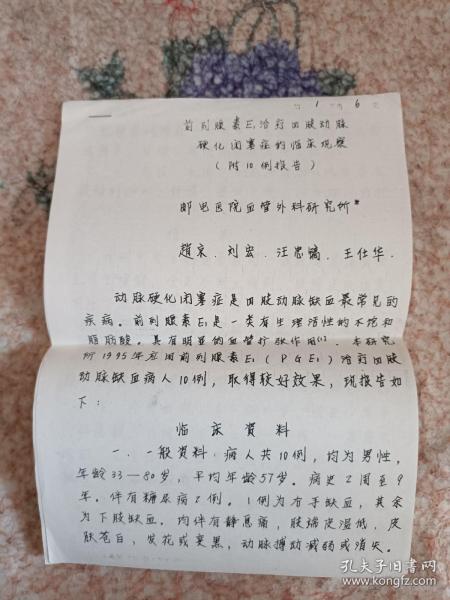 第1页 6
前列腺素E₁治疗四肢动脉
硬化闭塞症的临床观察
(附10例报告)
邮电医院血管外科研究所*
赵京、刘宏、汪忠镐、王仕华.
动脉硬化闭塞症是四肢动脉缺血最常见的
疾病。前列腺素E₁是一类有生理活性的不饱和
脂肪酸。具有明显的血管扩张作用⁽¹⁾。本研究
所1995年应用前列腺素E₁(PGE₁)治疗四肢
动脉缺血病人10例,取得较好效果,现报告如
下:
临床资料
一、一般资料:病人共10例,均为男性,
年龄33—80岁,平均年龄57岁。病史2周至9
年。伴有糖尿病2例。1例为右手缺血,其余
为下肢缺血。均伴有静息痛,肢端皮温低,皮
肤苍白,发花或变黑,动脉搏动减弱或消失。
孔夫子旧书网
kongfz.com